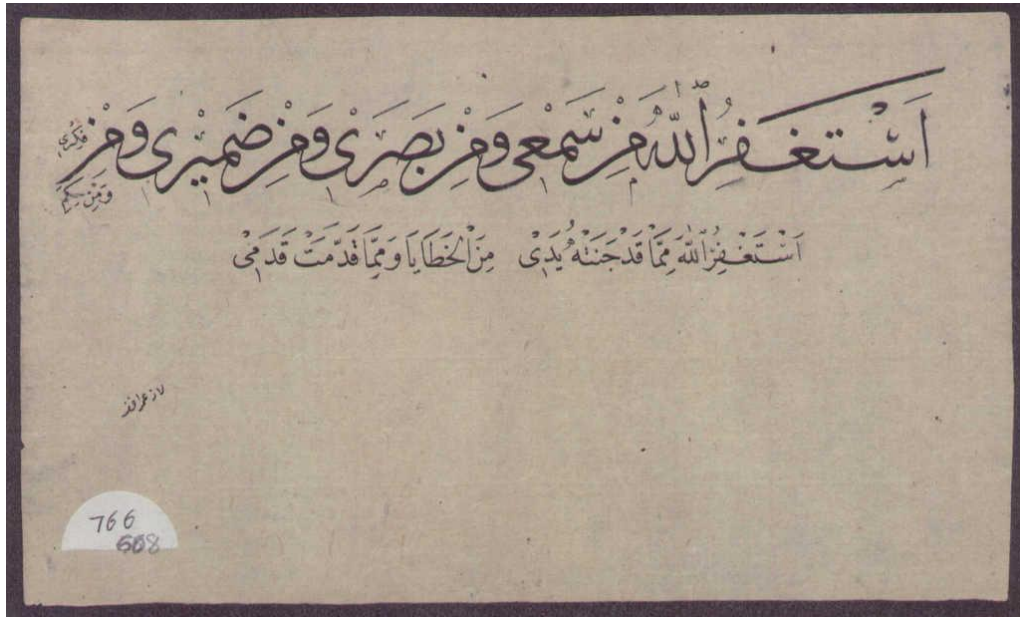 اَسْتَغْفِرُ اللهَ مِنْ سَمْعِى وَمِنْ بَصَرِىْ وَمِنْ ضَمِيْرِى وَمِنْ فِكْرِىْ
وَمِنْ
اَسْتَغْفِرُ اللهَ مِمَّا قَدْ جَنَتْهُ يَدِىْ مِنَ الْخَطَايَا وَمِمَّا قَدَّمَتْ قَدَمِىْ
766
608